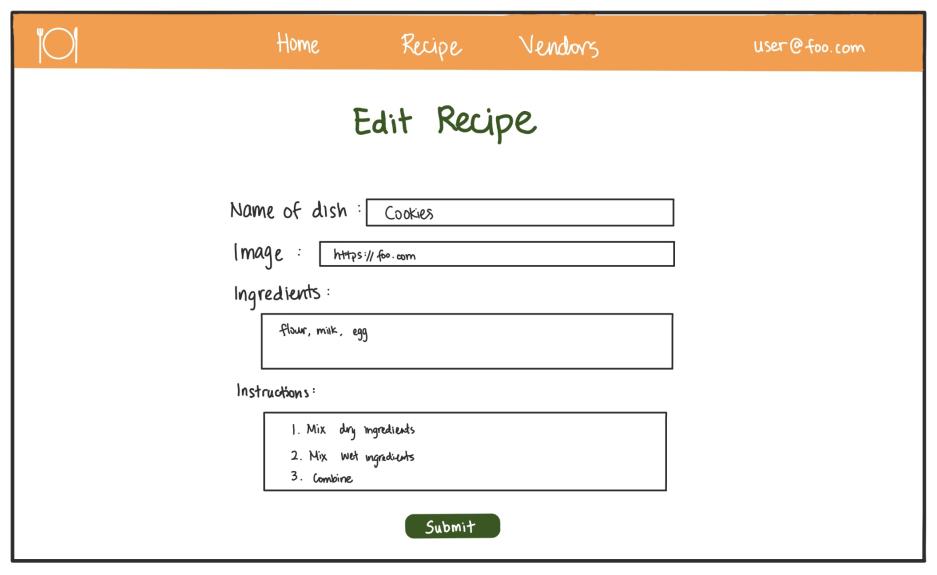 Home Recipe Vendors user@foo.com
Edit Recipe
Name of dish : Cookies
Image : https://foo.com
Ingredients :
flour, milk, egg
Instructions :
1. Mix dry ingredients
2. Mix wet ingredients
3. Combine
Submit